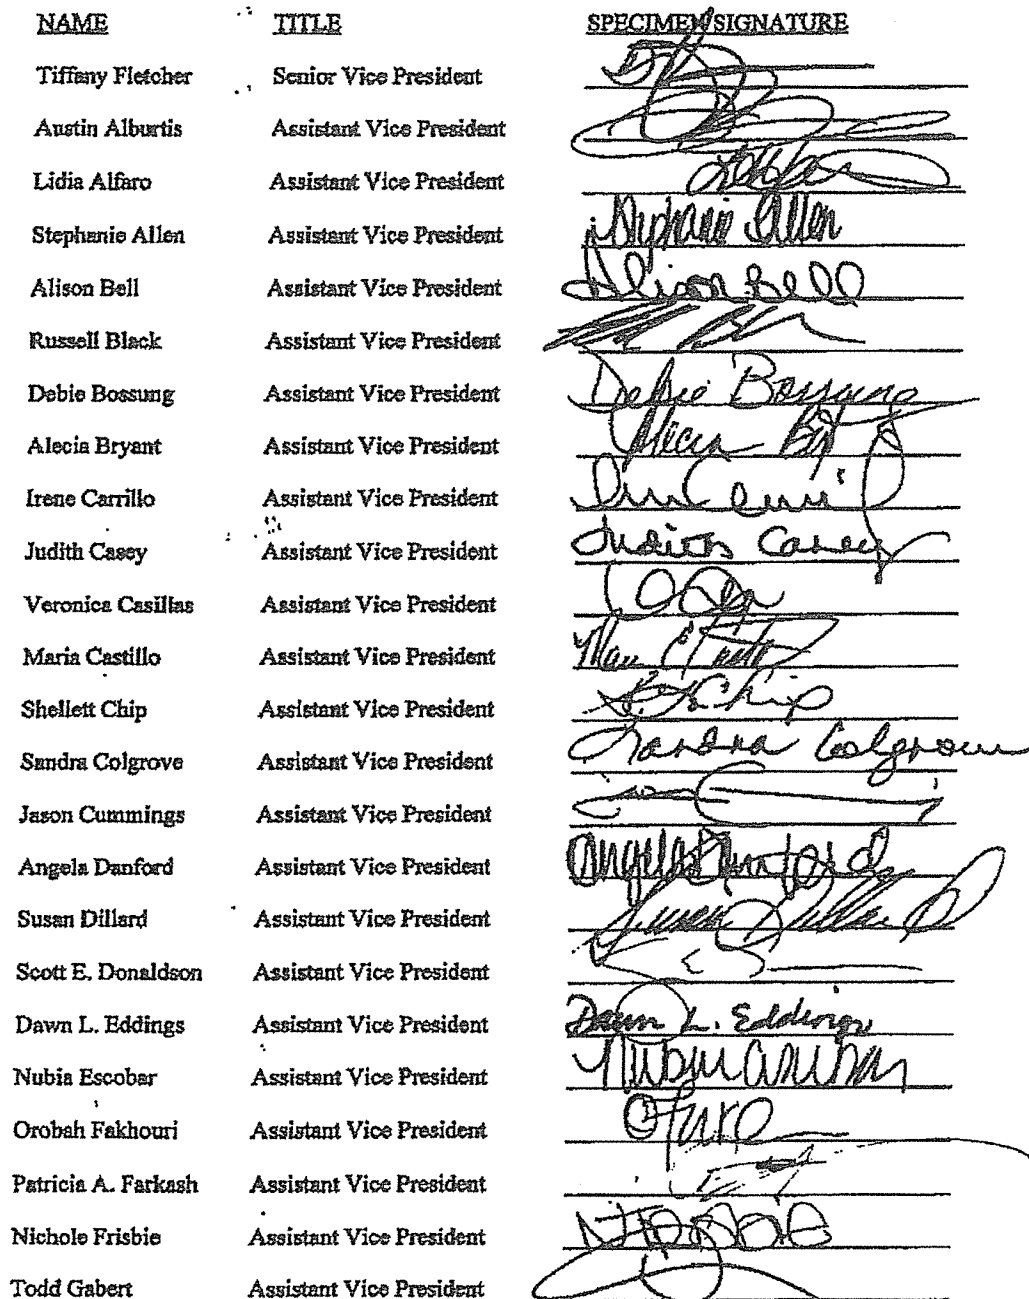 NAME TITLE SPECIMEN SIGNATURE
Tiffany Fletcher Senior Vice President
Austin Alburtis Assistant Vice President
Lidia Alfaro Assistant Vice President
Stephanie Allen Assistant Vice President Stephanie Allen
Alison Bell Assistant Vice President Alison Bell
Russell Black Assistant Vice President
Debie Bossung Assistant Vice President Debie Bossung
Alecia Bryant Assistant Vice President Alecia
Irene Carrillo Assistant Vice President
Judith Casey Assistant Vice President Judith Casey
Veronica Casillas Assistant Vice President
Maria Castillo Assistant Vice President
Shellett Chip Assistant Vice President Chip
Sandra Colgrove Assistant Vice President Sandra Colgrove
Jason Cummings Assistant Vice President
Angela Danford Assistant Vice President Angela Danford
Susan Dillard Assistant Vice President Susan Dillard
Scott E. Donaldson Assistant Vice President
Dawn L. Eddings Assistant Vice President Dawn L. Eddings
Nubia Escobar Assistant Vice President
Orobah Fakhouri Assistant Vice President
Patricia A. Farkash Assistant Vice President
Nichole Frisbie Assistant Vice President
Todd Gabert Assistant Vice President